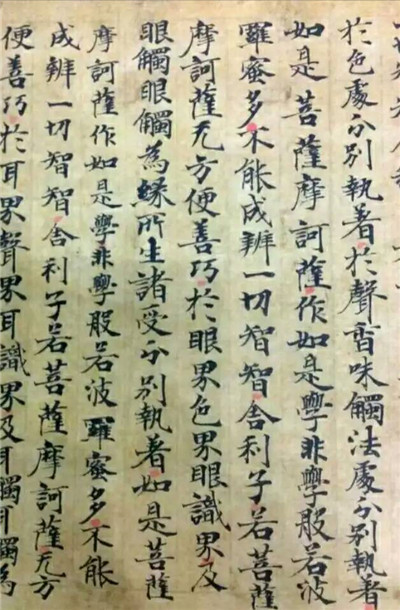 於色處分別執著於聲香味觸法處分別執著
如是菩薩摩訶薩作如是學非學般若波
羅蜜多不能成辨一切智智舍利子若菩薩
摩訶薩无方便善巧於眼界色界眼識界及
眼觸眼觸為緣所生諸受分別執著如是菩薩
摩訶薩作如是學非學般若波羅蜜多不能
成辨一切智智舍利子若菩薩摩訶薩无方
便善巧於耳界聲界耳識界及耳觸耳觸為